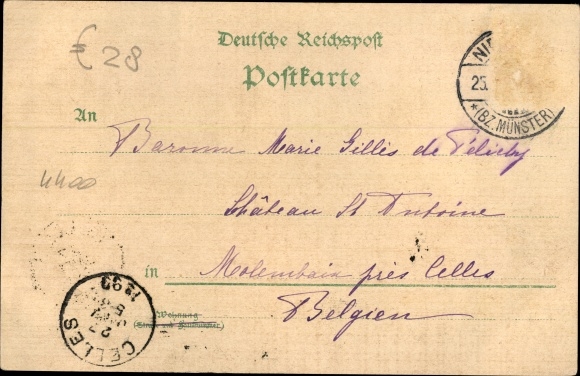 € 28
Deutsche Reichspost
Postkarte
NI
25.
*(BZ. MÜNSTER)
An
Baronne Marie Gillis de Pélichy
4400
Château St Antoine
in
Molembaix près Celles
Belgien
Wohnung
(Straße und Hausnummer)
CELLES
1899